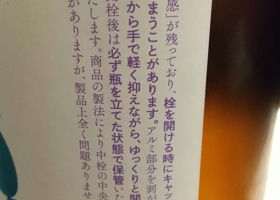 感」が残っており、栓を開ける時にキャッ
まうことがあります。アルミ部分を剥が
から手で軽く抑えながら、ゆっくりと開
栓後は必ず瓶を立てた状態で保管いた
たします。商品の製法により中栓の中央
がありますが、製品上全く問題ありませ